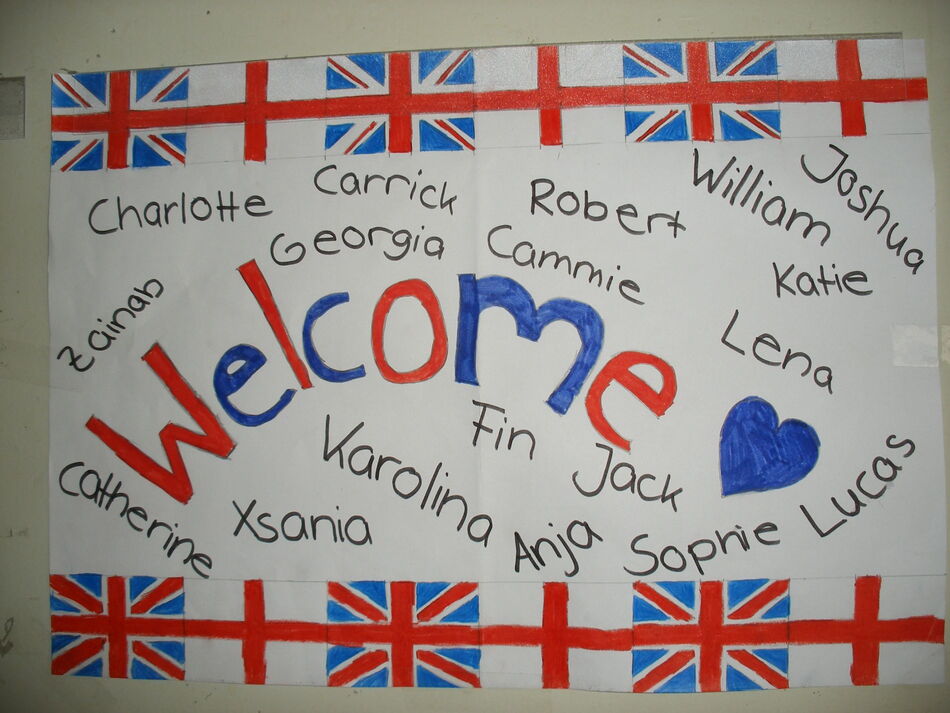 Charlotte
Carrick
Robert
William
Joshua
Georgia
Cammie
Katie
Zainab
Welcome
Lena
Fin
Karolina
Jack
Lucas
Catherine
Xsania
Anja
Sophie